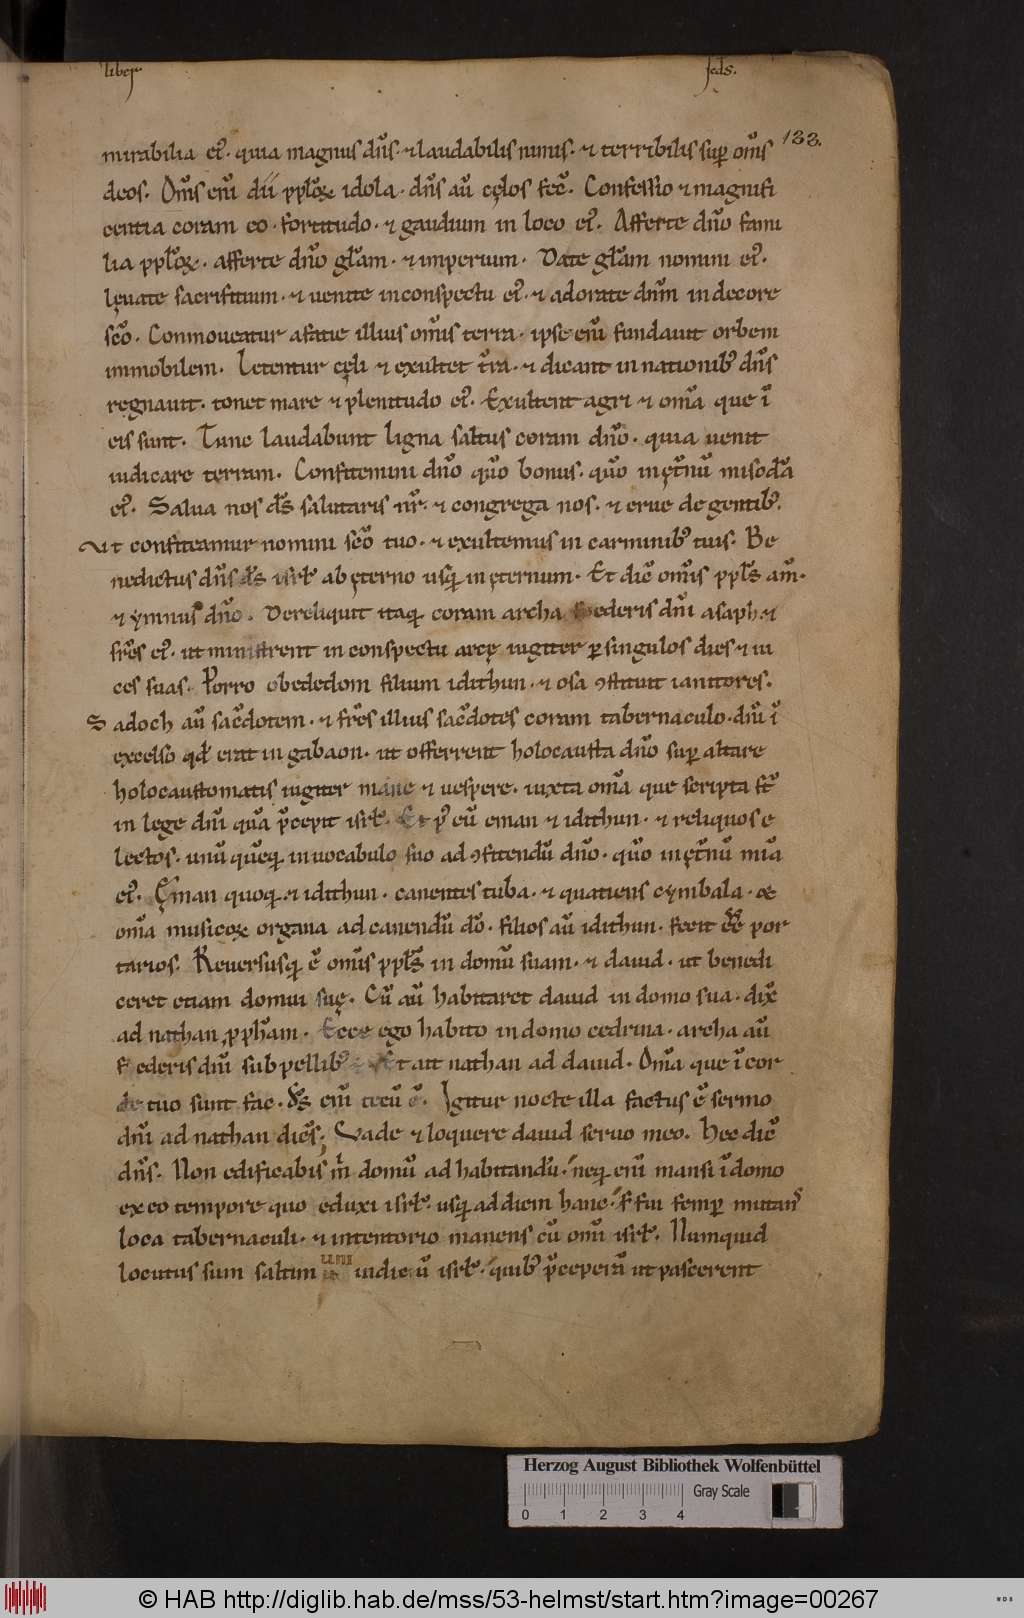 liber
scds.
133.
mirabilia ei᷒. quia magnus dn̄s. ⁊ laudabilis nimis. ⁊ terribilis suꝑ om̄s
deos. Om̄s eni̅ dii ppl̓oꝝ idola. dn̄s au̅ cęlos fec̅. Confessio ⁊ magnifi
centia coram eo. fortitudo. ⁊ gaudium in loco ei᷒. Afferte dn̄o fami
lia ppl̓oꝝ. afferte dn̄o gl̓am. ⁊ imperium. Date gl̓am nomini ei᷒.
lęuate sacrifitium. ⁊ uenite inconspectu ei᷒. ⁊ adorate dn̄m indecore
sc̄o. Conmoueatur afatie illius om̄is terra. ipse eni̅ fundauit orbem
immobilem. Letentur cęli ⁊ exultet t̄ra. ⁊ dicant in nationib᷒ dn̄s
regnauit. tonet mare ⁊ plenitudo ei᷒. Exultent agri ⁊ om̄a que i̅
eis sunt. Tunc laudabunt ligna saltus coram dn̄o. quia uenit
iudicare terram. Confitemini dn̄o qm̅o bonus. qm̅o in ęt̄nu̅ misc̄dia
ei᷒. Salua nos ds̄ salutaris nr̄. ⁊ congrega nos. ⁊ erue de gentib᷒.
Vt confiteamur nomini sc̄o tuo. ⁊ exultemus in carminib᷒ tuis. Be
nedictus dn̄s ds̄ isrl̓ ab ęterno usq̨ in ęternum. Et dic̅ om̄is ppl̓s am̅.
⁊ ymnus dn̄o. Dereliquit itaq̨ coram archa foederis dn̄i asaph. ⁊
fr̄es ei᷒. ut ministrent in conspectu arcę iugiter ꝑ singulos dies ⁊ ui
ces suas. Porro obededom filium idithun. ⁊ osa ꝯstituit ianitores.
Sadoch au̅ sac̅dotem. ⁊ fr̄es illius sac̅dotes coram tabernaculo. dn̄i i̅
excelso qd̓ erat in gabaon. ut offerrent holocausta dn̄o suꝑ altare
holocaustomatis iugiter mane ⁊ uespere. iuxta om̄a que scripta st̅
in lege dn̄i qua̅ p̄cepit isrl̓. Et p᷒ eu̅ eman ⁊ idithun. ⁊ reliquos e
lectos. unu̅ que̅q̨ in uocabulo suo ad ꝯfitendu̅ dn̄o. qm̅o in ęt̄nu̅ mi̅a
ei᷒. Ęman quoq̨. ⁊ idithun. canentes tuba. ⁊ quatiens cymbala. &
om̄a musicoꝝ organa ad canendu̅ do̅. filios au̅ idithun. fecit ee̅ por
tarios. Reuersusq̨ e̅ om̄is ppl̓s in domu̅ suam. ⁊ dauid. ut benedi
ceret etiam domui suę. Cu̅ au̅ habitaret dauid in domo sua. dix̅
ad nathan ꝓph̄am. Ecce ego habito in domo cedrina. archa au̅
foederis dn̄i sub pellib᷒. Et ait nathan ad dauid. Om̄a que i̅ cor
de tuo sunt fac. ds̄ eni̅ tecu̅ e̅. Igitur nocte illa factus e̅ sermo
dn̄i ad nathan dice̅s. Vade ⁊ loquere dauid seruo meo. Hec dic̅
dn̄s. Non edificabis m̓ domu̅ ad habitandu̅. neq̨ eni̅ mansi i̅ domo
ex eo tempore quo eduxi isrl̓. usq̨ ad diem hanc. s̓ fui semꝑ mutan̅s
loca tabernaculi. ⁊ intentorio manens cu̅ omi̅ isrl̓. Numquid
locutus sum saltim uni iudicu̅ isrl̓. quib᷒ p̄cepera̅ ut pascerent
Herzog August Bibliothek Wolfenbüttel
Gray Scale
0 1 2 3 4
© HAB http://diglib.hab.de/mss/53-helmst/start.htm?image=00267